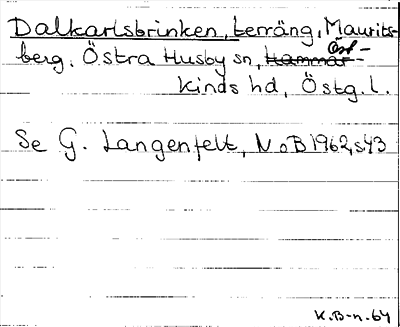 Dalkarlsbrinken, terräng, Maurits-
berg. Östra Husby sn, Öst-
kinds hd, Östg. l.
Se G. Langenfelt, NoB 1962, s43
K.B-n. 64